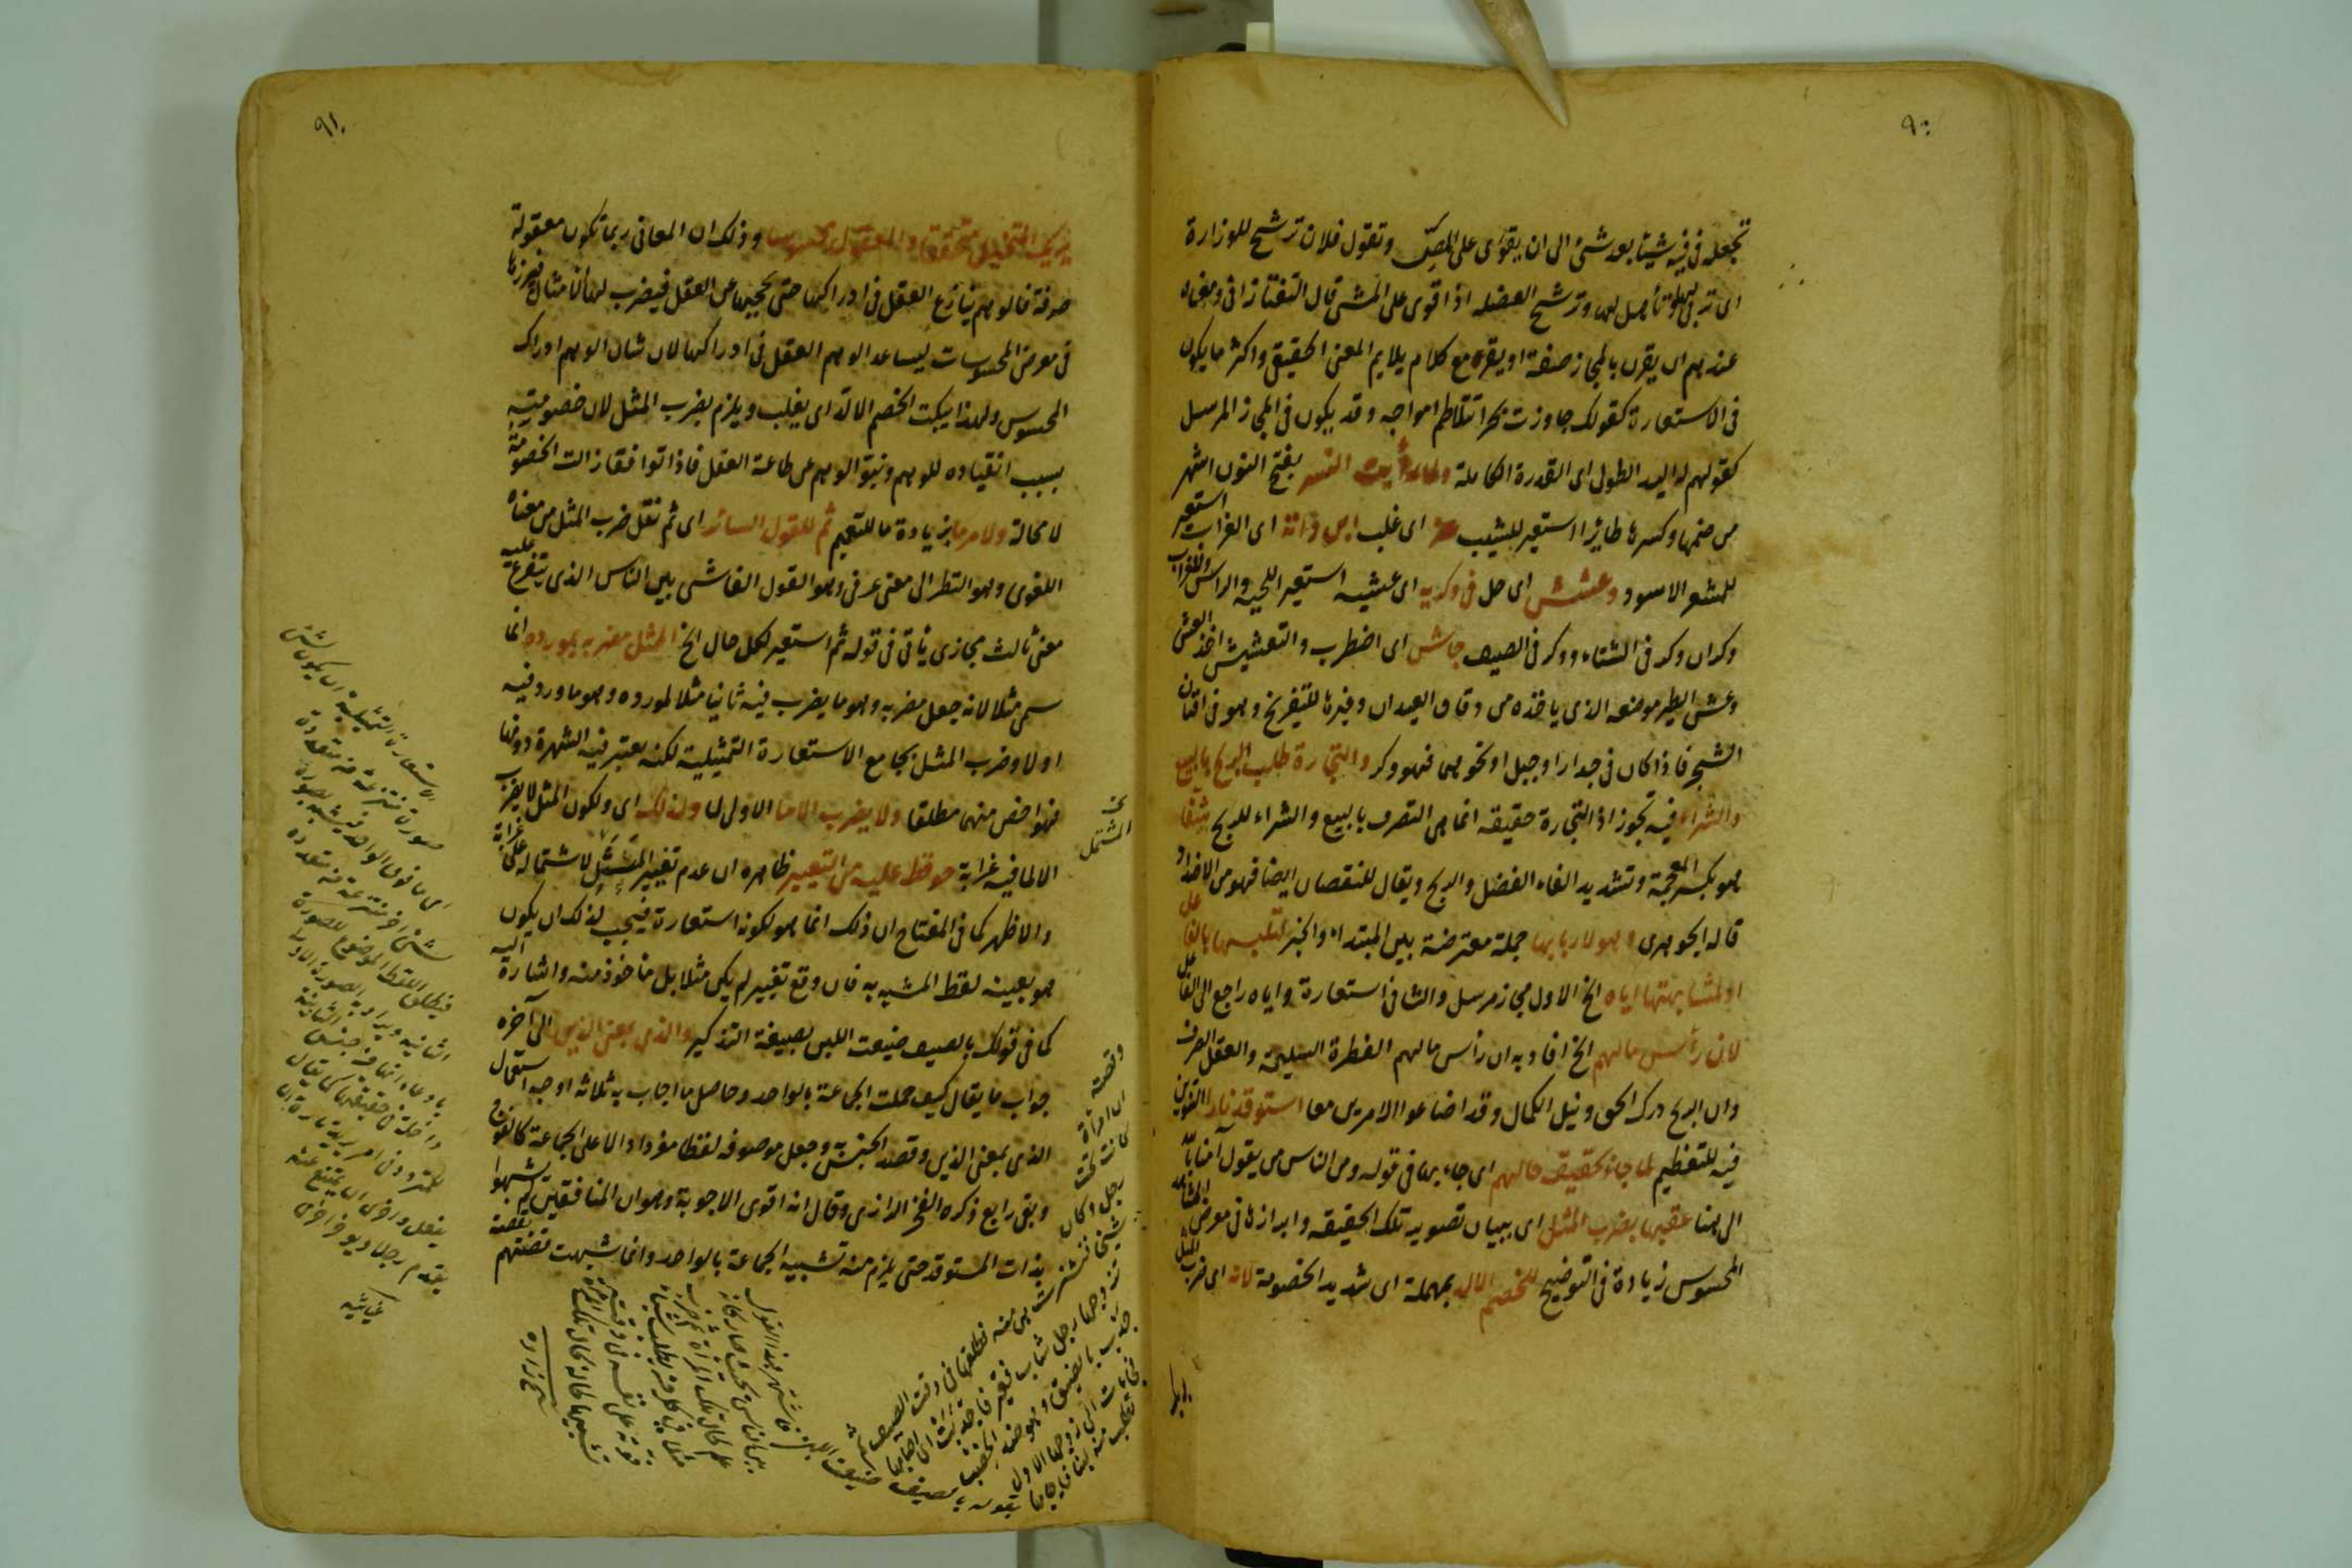 ٩٠
تجعله في فيه شيئا بعد شئ الى ان يقوى على المصّ وتقول فلان ترشح للوزارة
اى تربى لها وتأهل لها وترشح الفصيل اذا قوى على المشى قال التفتازانى ومعناه
عندهم ان يقرن بالمجاز صفة او يقرنه مع كلام يلايم المعنى الحقيقى واكثر ما يكون
فى الاستعارة كقولك جاوزت بحرا تتلاطم امواجه وقد يكون فى المجاز المرسل
كقولهم له اليد الطولى اى القدرة الكاملة ولما رأيت النسر بفتح النون اشهر
من ضمها وكسرها طائر استعير للشيب عز اى غلب ابن داية اى الغراب استعير
للشعر الاسود وعشش اى حل فى وكريه اى عشيه استعير اللحية والراس وللغراب
وكران وكر فى الشتاء ووكر فى الصيف جاش اى اضطرب والتعشيش اخذ العش
وعش الطير موضعه الذى ياخذه من دقاق العيدان وغيرها للتفريخ وهو فى افنان
الشجر فاذا كان فى جدار او جبل او نحوهما فهو وكر والتجارة طلب الربح بالبيع
والشراء فيه تجوز اذ التجارة حقيقة انما هى التصرف بالبيع والشراء للربح شفا
هو بكسر المعجمة وتشديد الفاء الفضل والربح ويقال للنقصان ايضا فهو من الاضداد
قاله الجوهرى وهو لاربابها جملة معترضة بين المبتداء والخبر لتلبسها بالفاعل
او لمشابهتها اياه الخ الاول مجاز مرسل والثانى استعارة واياه راجع الى الفاعل
لان رأس مالهم الخ افاد به ان رأس مالهم الفطرة السليمة والعقل الصرف
وان الربح درك الحق ونيل الكمال وقد اضاعوا الامرين معا استوقد نارا التنوين
فيه للتعظيم لما جاء بحقيقة حالهم اى جاء بها فى قوله ومن الناس من يقول آمنا بالله
الى هنا عقبها بضرب المثل اى ببيان تصوير تلك الحقيقة وابرازها فى معرض المشاهد
المحسوس زيادة فى التوضيح للخصم الالد بمهملة اى شديد الخصومة لانه اى ضرب المثل
يريك
٩١
يريك المتخيل متحققا والمعقول محسوسا وذلك ان المعانى ربما تكون معقولة
صرفة فالوهم ينازع العقل فى ادراكها حتى يحجبها عن العقل فيضرب لها الامثال فيبرزها
فى معرض المحسوسات ليساعد الوهم العقل فى ادراكها لان شان الوهم ادراك
المحسوس ولهذا يبكت الخصم الالد اى يغلب ويلزم بضرب المثل لان خصومته
بسبب انقياده للوهم ونبو الوهم عن طاعة العقل فاذا توافقا زالت الخصومة
لا محالة ولامر ما بزيادة ما للتعميم ثم للقول السائر اى ثم نقل ضرب المثل من معناه
اللغوى وهو النظير الى معنى عرفى وهو القول الفاشى بين الناس الذى يتفرع عليه
معنى ثالث مجازى ياتى فى قوله ثم استعير لكل حال الخ الممثل مضربه بمورده انما
سمى مثلا لانه جعل مضربه وهو ما يضرب فيه ثانيا مثلا لمورده وهو ما ورد فيه
اولا وضرب المثل يجامع الاستعارة التمثيلية لكنه يعتبر فيه الشهرة دونها
فهو اخص منها مطلقا ولا يضرب الا ما الاولى لما ولذلك اى ولكون المثل لا يضرب
الا لما فيه غرابة حوفظ عليه من التغيير ظاهره ان عدم تغيير المثل لاشتماله على غرابة
والاظهر كما فى المفتاح ان ذلك انما هو لكونه استعارة فيجب لذلك ان يكون
هو بعينه لفظ المشبه به فان وقع تغيير لم يكن مثلا بل ماخوذ منه واشارة اليه
كما فى قولك بالصيف ضيعت اللبن بصيغة التذكير والذى بمعنى الذين الى آخره
جواب ما يقال كيف حملت الجماعة بالواحد وحاصل ما اجاب به ثلاثة اوجه استعمال
الذى بمعنى الذين وقصد الجنس وجعل موصوفه لفظا مفردا دالا على الجماعة كالفوج
وبقى رابع ذكره الفخر الرازى وقال انه اقوى الاجوبة وهو ان المنافقين لم يشبهوا
بذات المستوقد حتى يلزم منه تشبيه الجماعة بالواحد وانما شبهت قصتهم بقصة
الاستعارة التمثيلية ان يكون لشئ
صورة منتزعة من متعددة
شئ آخر منتزعة من متعددة
فيطلق اللفظ الموضوع للصورة
الثانية ويراد به الصورة الاولى
بادعاء انها من جنس الثانية
داخلة فى حقيقتها كما يقال
للمتردد فى امر يريد تارة ان
يفعل واخرى ان يمتنع عنه
يقدم رجلا ويؤخر اخرى
المشتمل
وقصته
ان امرأة
كانت تحت
رجل وكان
شيخا
تزوجها رجل شاب فقير
فطلقها فى وقت الصيف ثم
شيخ زاده